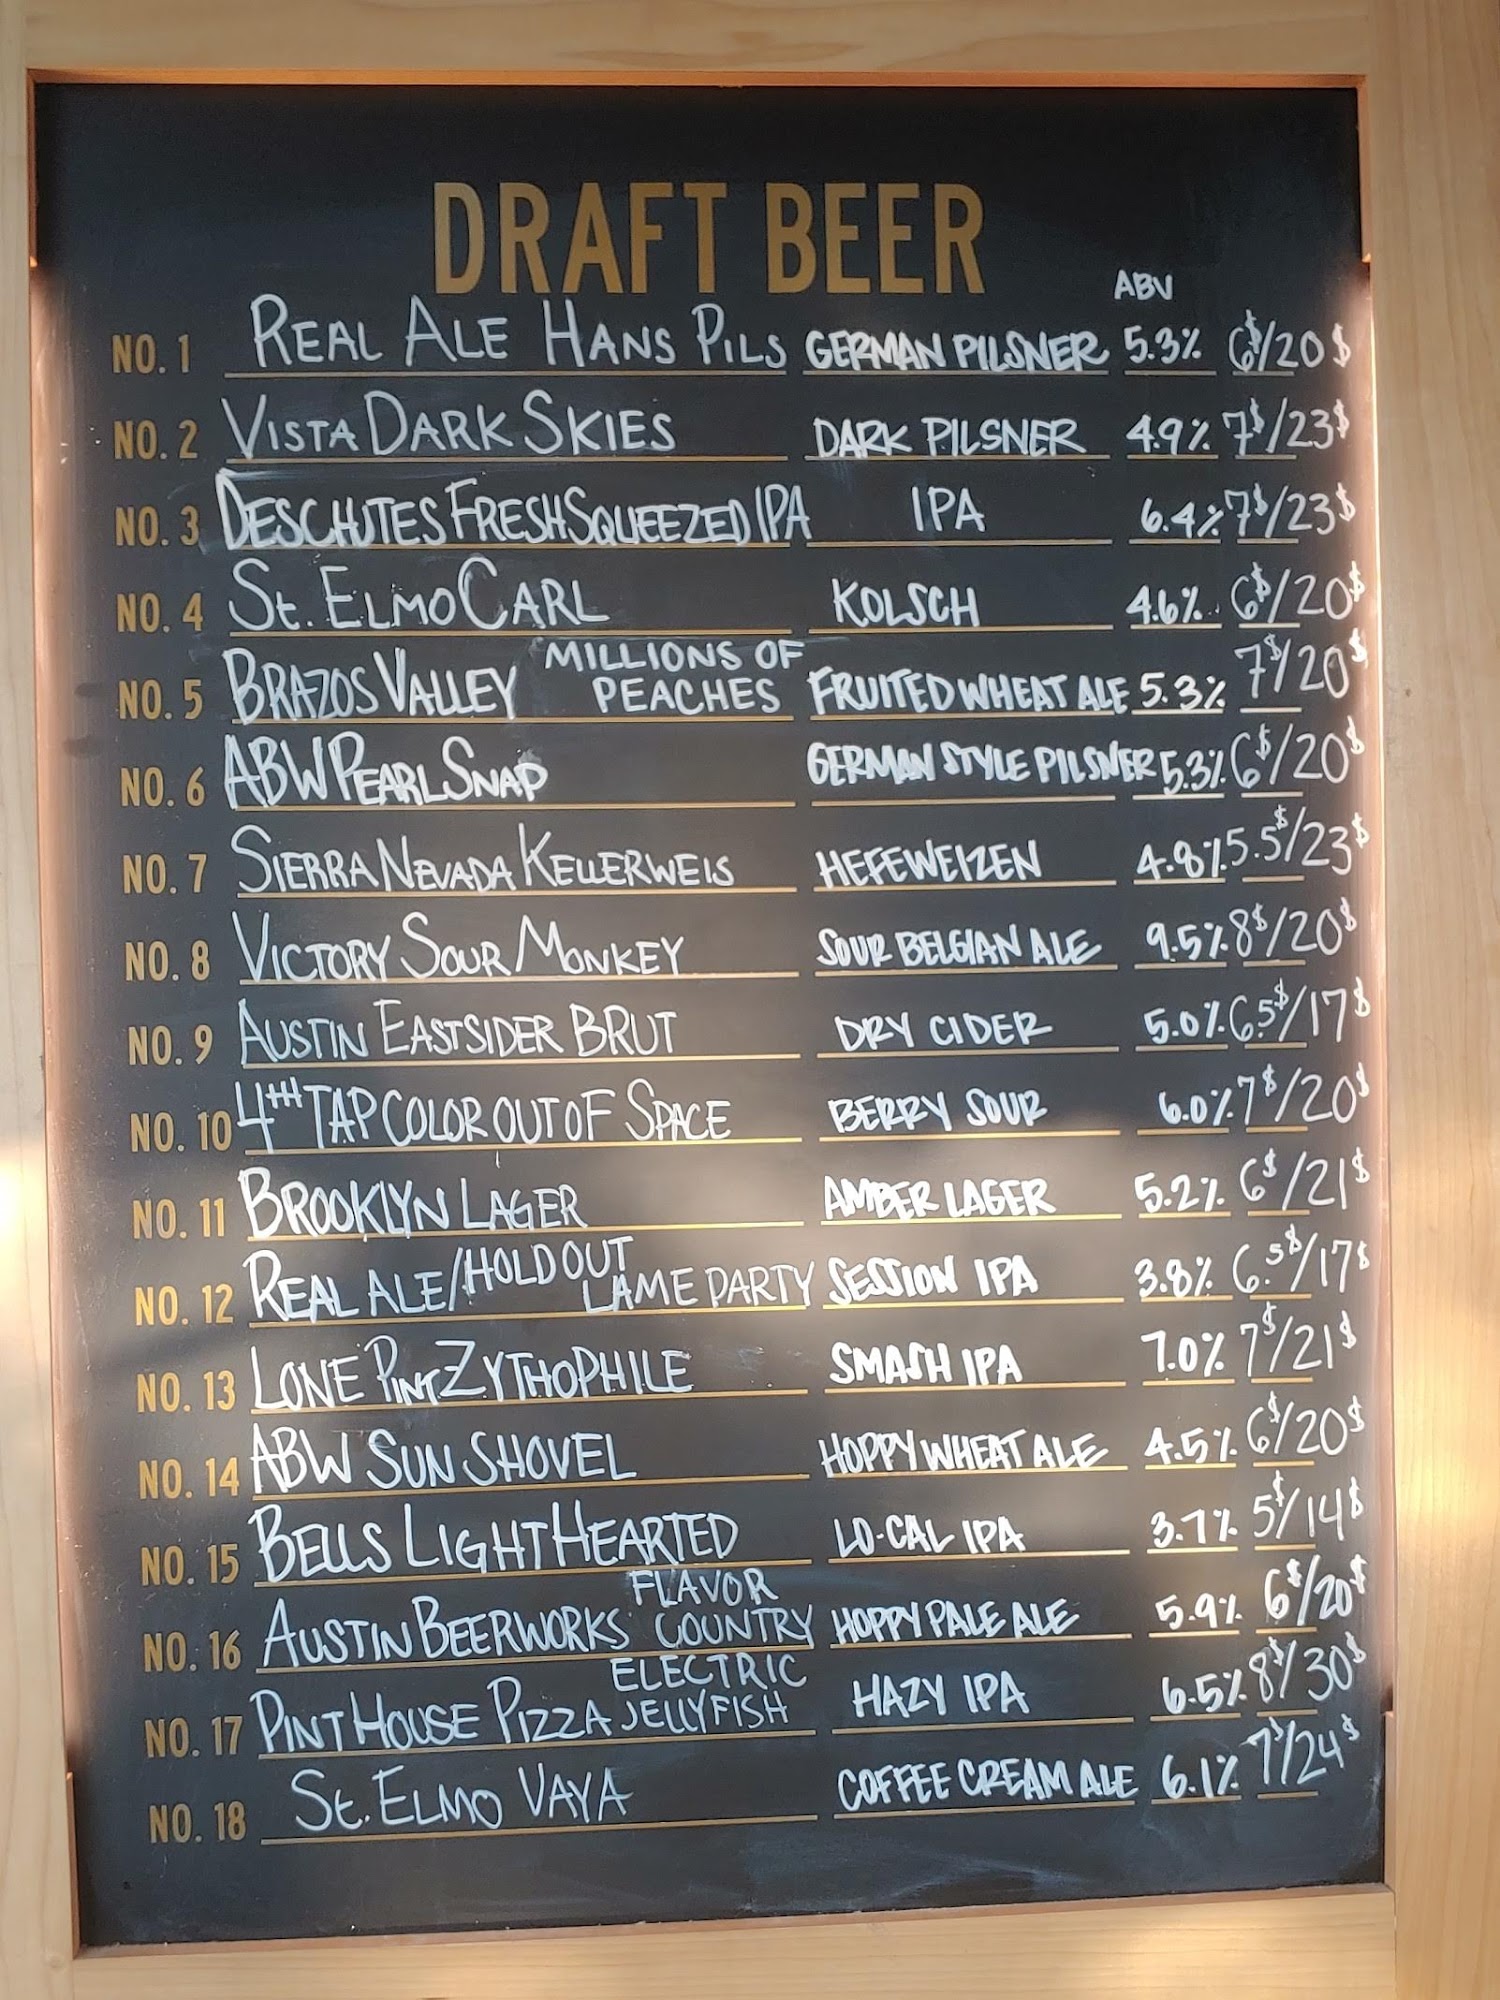 DRAFT BEER
ABV
NO. 1 REAL ALE HANS PILS GERMAN PILSNER 5.3% 6$/20$
NO. 2 VISTA DARK SKIES DARK PILSNER 4.9% 7$/23$
NO. 3 DESCHUTES FRESH SQUEEZED IPA IPA 6.4% 7$/23$
NO. 4 St. ELMO CARL KOLSCH 4.6% 6$/20$
NO. 5 BRAZOS VALLEY MILLIONS OF PEACHES FRUITED WHEAT ALE 5.3% 7$/20$
NO. 6 ABW PEARL SNAP GERMAN STYLE PILSNER 5.3% 6$/20$
NO. 7 SIERRA NEVADA KELLERWEIS HEFEWEIZEN 4.8% 5.5$/23$
NO. 8 VICTORY SOUR MONKEY SOUR BELGIAN ALE 9.5% 8$/20$
NO. 9 AUSTIN EASTSIDER BRUT DRY CIDER 5.0% 6.5$/17$
NO. 10 4TH TAP COLOR OUT OF SPACE BERRY SOUR 6.0% 7$/20$
NO. 11 BROOKLYN LAGER AMBER LAGER 5.2% 6$/21$
NO. 12 REAL ALE/HOLD OUT LAME PARTY SESSION IPA 3.8% 6.5$/17$
NO. 13 LONE PINT ZYTHOPHILE SMASH IPA 7.0% 7$/21$
NO. 14 ABW SUN SHOVEL HOPPY WHEAT ALE 4.5% 6$/20$
NO. 15 BELLS LIGHT HEARTED LO-CAL IPA 3.7% 5$/14$
NO. 16 AUSTIN BEERWORKS FLAVOR COUNTRY HOPPY PALE ALE 5.9% 6$/20$
NO. 17 PINT HOUSE PIZZA ELECTRIC JELLYFISH HAZY IPA 6.5% 8$/30$
NO. 18 St. ELMO VAYA COFFEE CREAM ALE 6.1% 7$/24$